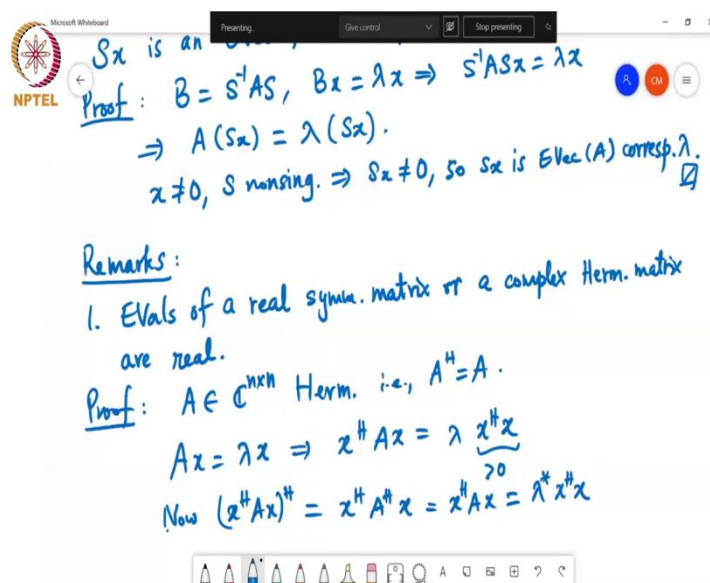 Microsoft Whiteboard
Presenting...
Give control
Stop presenting
NPTEL
CM
Sx is an
Proof : B = S⁻¹AS, Bx = λx ⇒ S⁻¹ASx = λx
⇒ A(Sx) = λ(Sx).
x ≠ 0, S nonsing. ⇒ Sx ≠ 0, so Sx is EVec(A) corresp. λ.
Remarks :
1. EVals of a real symm. matrix or a complex Herm. matrix
are real.
Proof : A ∈ ℂⁿˣⁿ Herm. i.e., Aᴴ = A.
Ax = λx ⇒ xᴴAx = λ xᴴx
>0
Now (xᴴAx)ᴴ = xᴴAᴴx = xᴴAx = λ* xᴴx
A